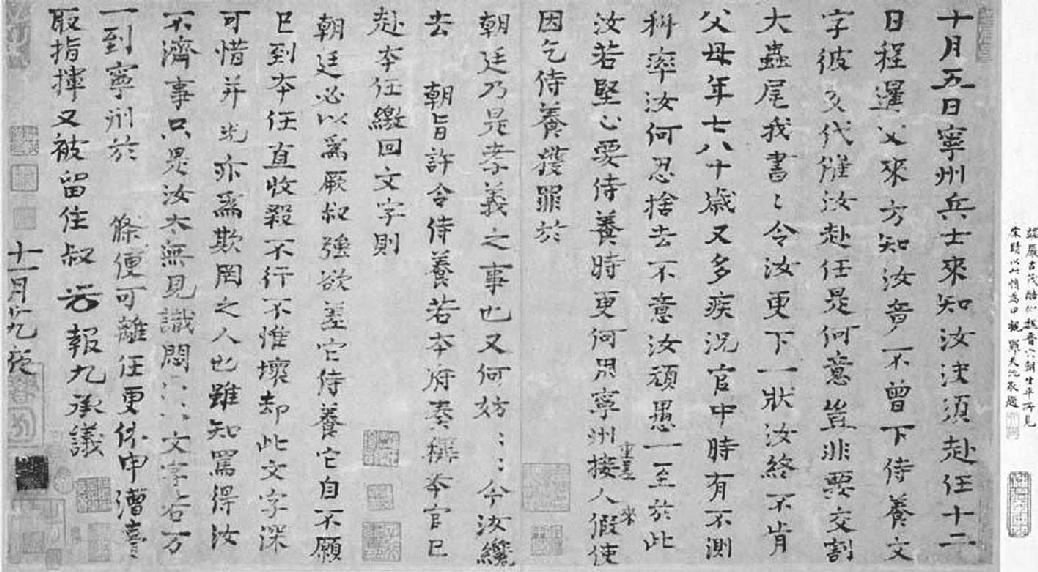 十月五日寧州兵士來知汝決須赴任十二
日程邇父來方知汝竟不曾下侍養文
字彼交代催汝赴任是何意豈非要交割
大蟲尾我書〻令汝更下一狀汝終不肯
父母年七八十歲又多疾況官中時有不測
科率汝何忍捨去不意汝頑愚一至於此
汝若堅心要侍養時更何用寧州接人假使
因乞侍養獲罪於
朝廷乃是孝義之事也又何妨〻〻今汝纔
去 朝旨許令侍養若本府奏稱本官已
赴本任繳回文字則
朝廷必以為厥叔強欲差它侍養它自不願
已到本任直收殺不行不惟壞却此文字深
可惜并光亦為欺罔之人也雖知罵得汝
不濟事只是汝太無見識悶〻〻文字若方
一到寧州於 條便可離任更休申漕臺
取指揮又被留住叔 報九承議
十一月廿九發